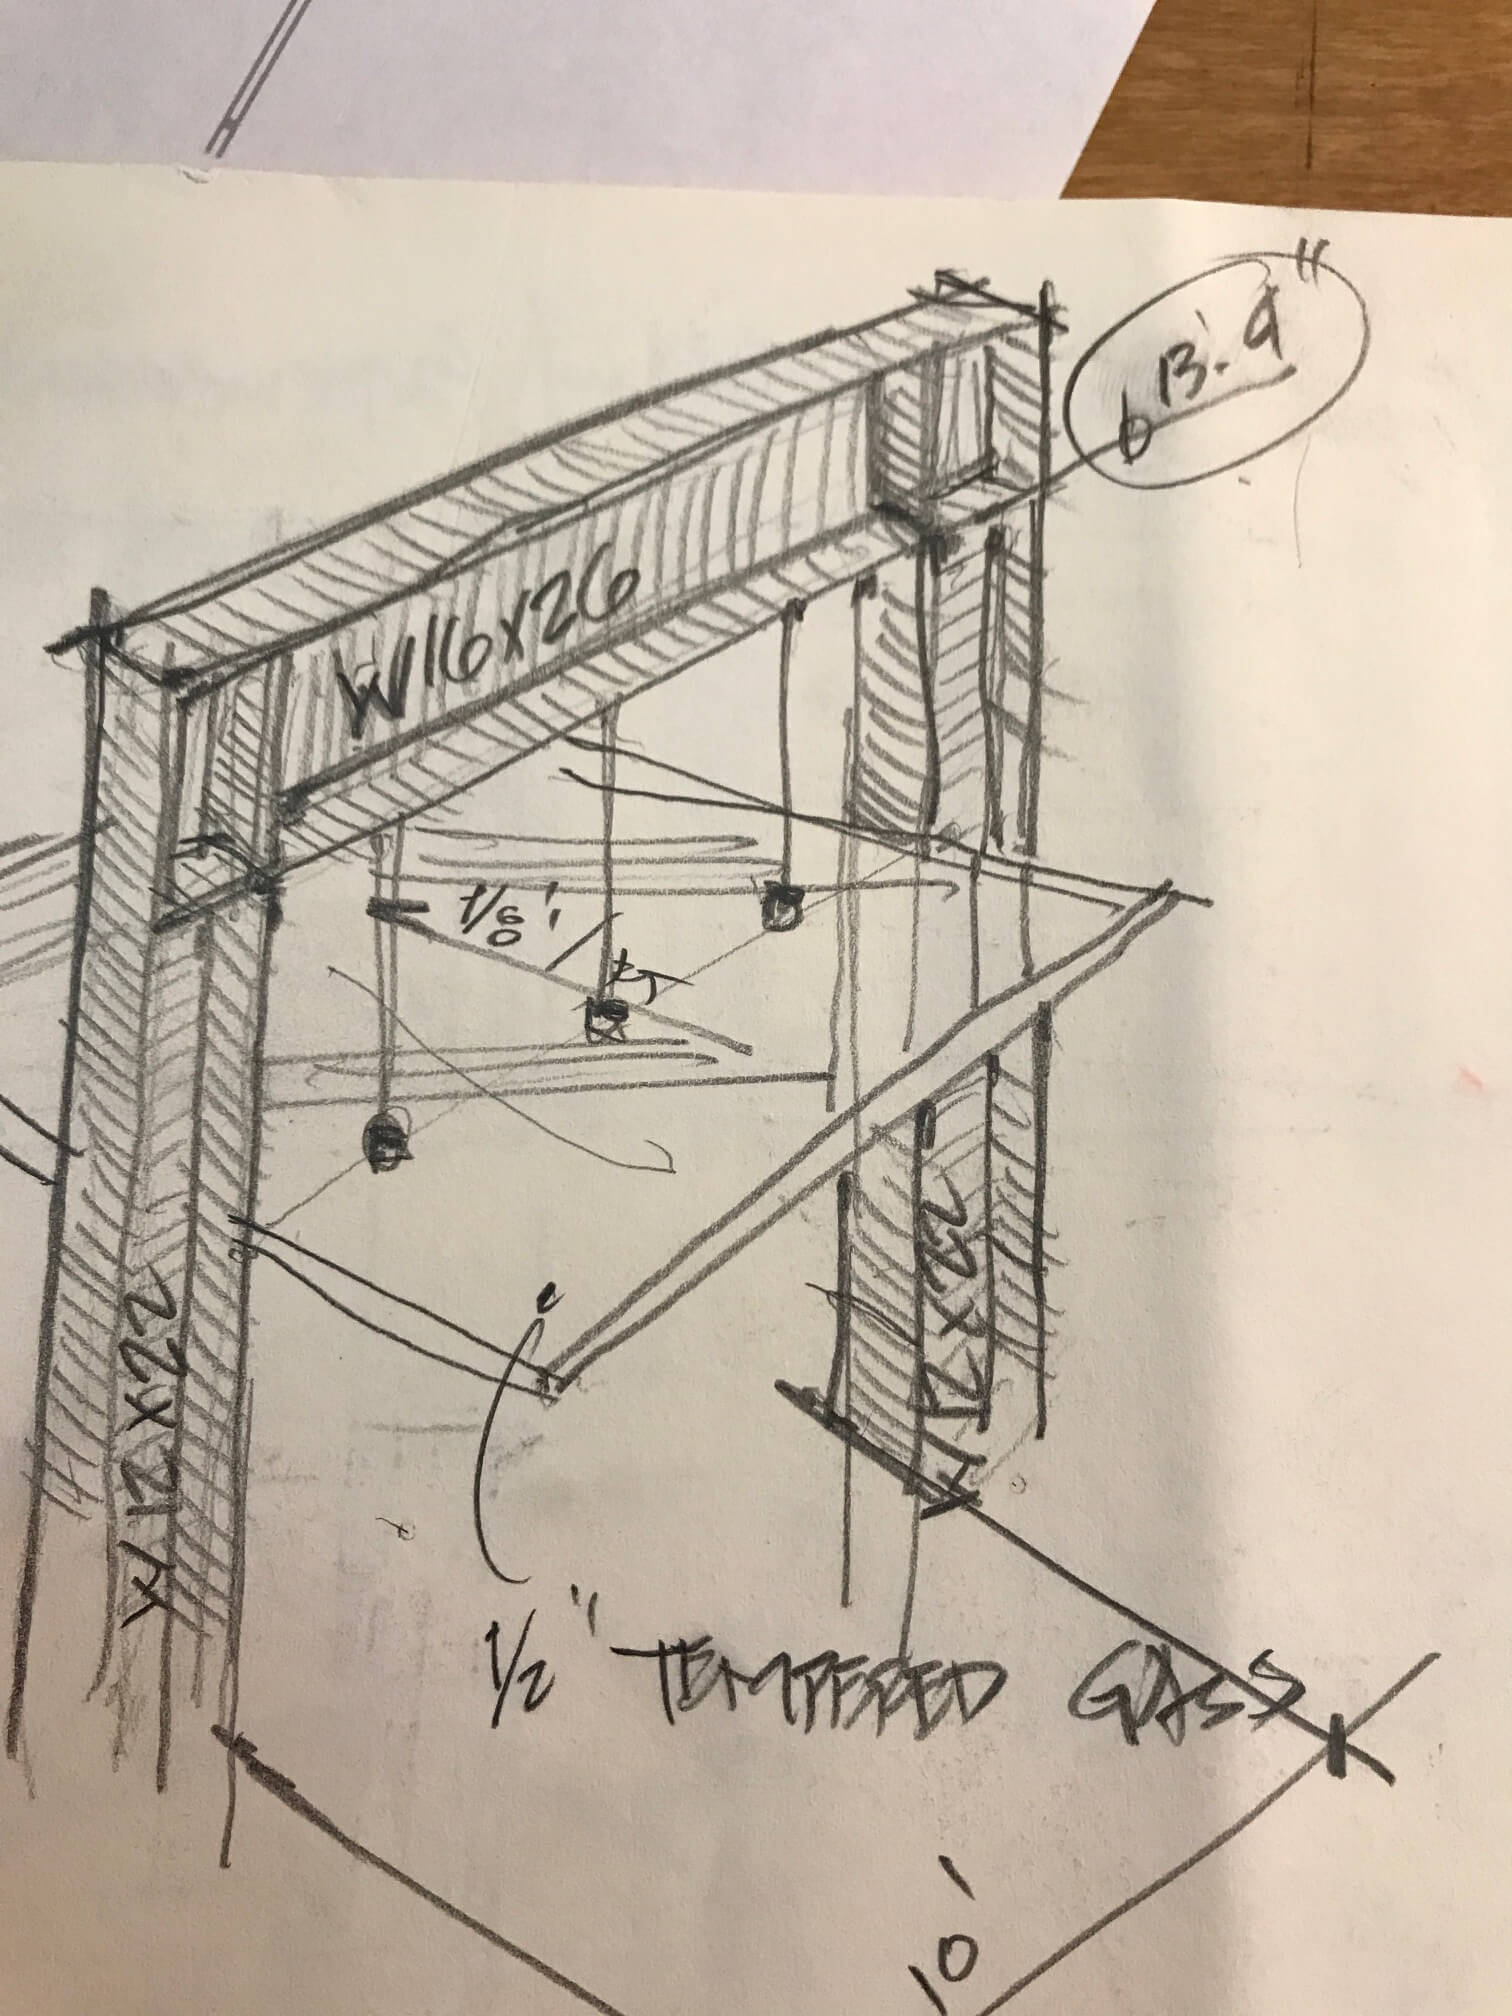 13'-9"
W16x26
W12x22
W12x22
1/2" TEMPERED GLASS
10'